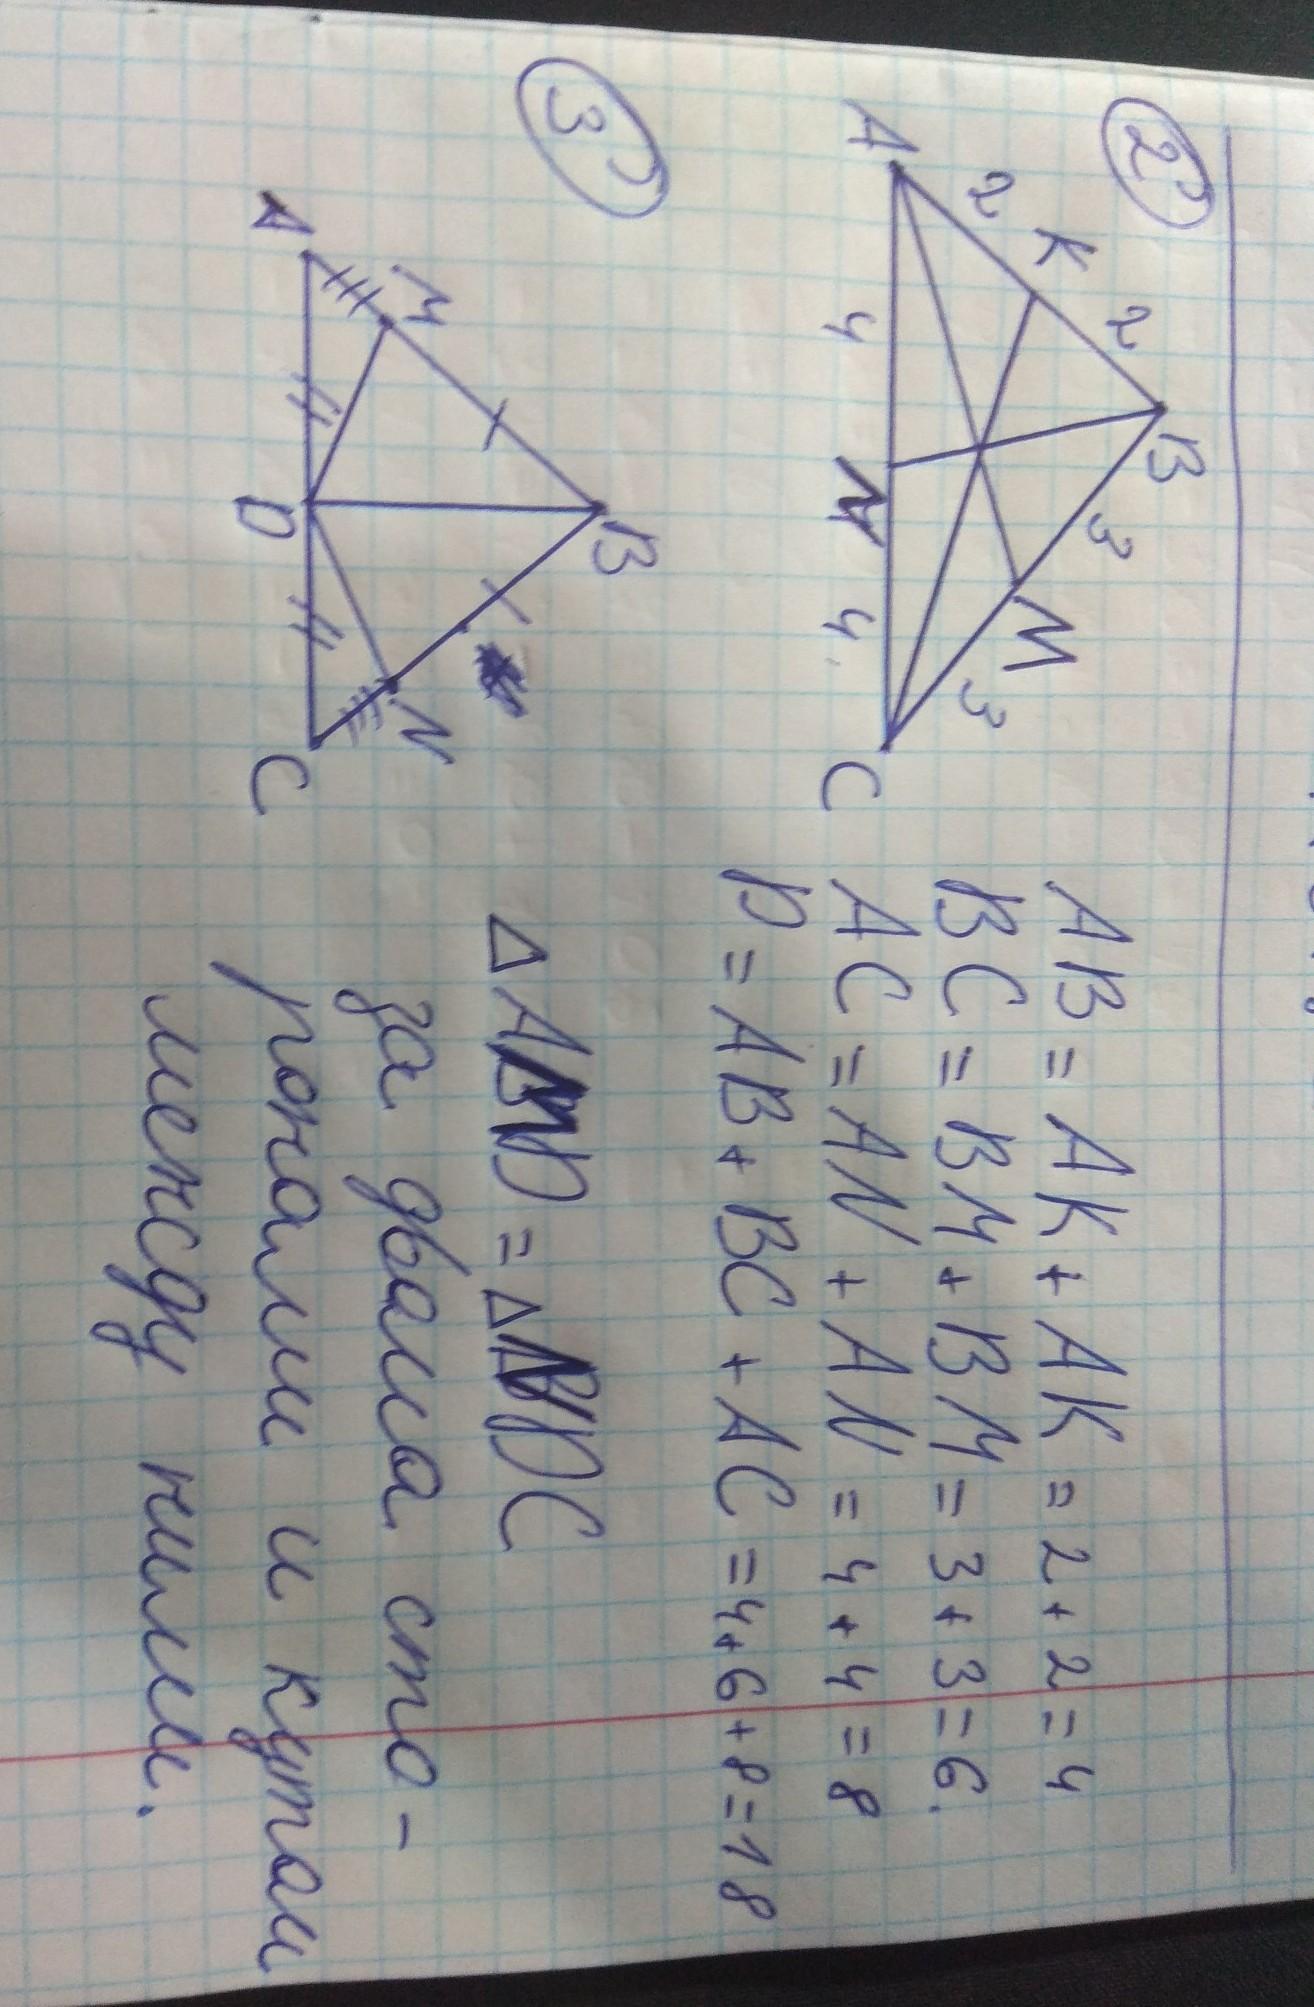 2)
A 2 K 2 B 3 M 3 C
4 N 4
AB = AK + AK = 2 + 2 = 4
BC = BM + BM = 3 + 3 = 6.
AC = AN + AN = 4 + 4 = 8
P = AB + BC + AC = 4 + 6 + 8 = 18
3)
A M B N C
D
за двома сто-
ронами и кутом
между ними.